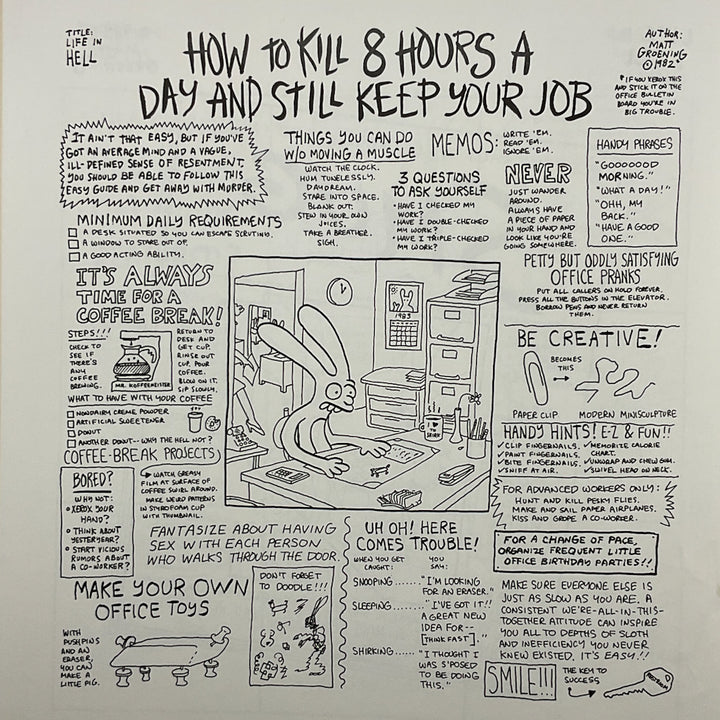 TITLE:
LIFE IN
HELL
HOW TO KILL 8 HOURS A
DAY AND STILL KEEP YOUR JOB
AUTHOR:
MATT
GROENING
©1982*
*IF YOU XEROX THIS
AND STICK IT ON THE
OFFICE BULLETIN
BOARD YOU'RE IN
BIG TROUBLE.
IT AIN'T THAT EASY, BUT IF YOU'VE
GOT AN AVERAGE MIND AND A VAGUE,
ILL-DEFINED SENSE OF RESENTMENT,
YOU SHOULD BE ABLE TO FOLLOW THIS
EASY GUIDE AND GET AWAY WITH MURDER.
MINIMUM DAILY REQUIREMENTS
A DESK SITUATED SO YOU CAN ESCAPE SCRUTINY.
A WINDOW TO STARE OUT OF.
A GOOD ACTING ABILITY.
THINGS YOU CAN DO
W/O MOVING A MUSCLE
WATCH THE CLOCK.
HUM TUNELESSLY.
DAYDREAM.
STARE INTO SPACE.
BLANK OUT.
STEW IN YOUR OWN
JUICES.
TAKE A BREATHER.
SIGH.
3 QUESTIONS
TO ASK YOURSELF
•HAVE I CHECKED MY
WORK?
•HAVE I DOUBLE-CHECKED
MY WORK?
•HAVE I TRIPLE-CHECKED
MY WORK?
MEMOS:
WRITE 'EM.
READ 'EM.
IGNORE 'EM.
NEVER
JUST WANDER
AROUND.
ALWAYS HAVE
A PIECE OF PAPER
IN YOUR HAND AND
LOOK LIKE YOU'RE
GOING SOMEWHERE.
HANDY PHRASES
"GOOOOOOD
MORNING."
"WHAT A DAY!"
"OHH, MY
BACK."
"HAVE A GOOD
ONE."
PETTY BUT ODDLY SATISFYING
OFFICE PRANKS
PUT ALL CALLERS ON HOLD FOREVER.
PRESS ALL THE BUTTONS IN THE ELEVATOR.
BORROW PENS AND NEVER RETURN
THEM.
IT'S ALWAYS
TIME FOR A
COFFEE BREAK!
STEPS!!!
CHECK TO
SEE IF
THERE'S
ANY
COFFEE
BREWING.
MR. KOFFEEMEISTER
RETURN TO
DESK AND
GET CUP.
RINSE OUT
CUP. POUR
COFFEE.
BLOW ON IT.
SIP SLOWLY.
WHAT TO HAVE WITH YOUR COFFEE
NONDAIRY CREME POWDER
ARTIFICIAL SWEETENER
DONUT
ANOTHER DONUT--WHY THE HELL NOT?
COFFEE-BREAK PROJECTS
WATCH GREASY
FILM AT SURFACE OF
COFFEE SWIRL AROUND.
MAKE WEIRD PATTERNS
IN STYROFOAM CUP
WITH THUMBNAIL.
BORED?
WHY NOT:
•XEROX YOUR
HAND?
•THINK ABOUT
YESTERYEAR?
•START VICIOUS
RUMORS ABOUT
A CO-WORKER?
1983
BE CREATIVE!
BECOMES
THIS
PAPER CLIP
MODERN MINISCULPTURE
HANDY HINTS! E-Z & FUN!!
✓CLIP FINGERNAILS.
✓PAINT FINGERNAILS.
✓BITE FINGERNAILS.
✓SNIFF AT AIR.
✓MEMORIZE CALORIE
CHART.
✓UNWRAP AND CHEW GUM.
✓SWIVEL HEAD ON NECK.
FOR ADVANCED WORKERS ONLY:
HUNT AND KILL PESKY FLIES.
MAKE AND SAIL PAPER AIRPLANES.
KISS AND GROPE A CO-WORKER.
FANTASIZE ABOUT HAVING
SEX WITH EACH PERSON
WHO WALKS THROUGH THE DOOR.
UH OH! HERE
COMES TROUBLE!
WHEN YOU GET
CAUGHT:
YOU
SAY:
SNOOPING......."I'M LOOKING
FOR AN ERASER."
SLEEPING......."I'VE GOT IT!!
A GREAT NEW
IDEA FOR--
[THINK FAST]."
SHIRKING......"I THOUGHT I
WAS S'POSED
TO BE DOING
THIS."
FOR A CHANGE OF PACE,
ORGANIZE FREQUENT LITTLE
OFFICE BIRTHDAY PARTIES!!
MAKE SURE EVERYONE ELSE IS
JUST AS SLOW AS YOU ARE. A
CONSISTENT WE'RE-ALL-IN-THIS-
TOGETHER ATTITUDE CAN INSPIRE
YOU ALL TO DEPTHS OF SLOTH
AND INEFFICIENCY YOU NEVER
KNEW EXISTED. IT'S EASY!!
MAKE YOUR OWN
OFFICE TOYS
WITH
PUSHPINS
AND AN
ERASER,
YOU CAN
MAKE A
LITTLE PIG.
DON'T FORGET
TO DOODLE!!!
SMILE!!!
THE KEY TO
SUCCESS